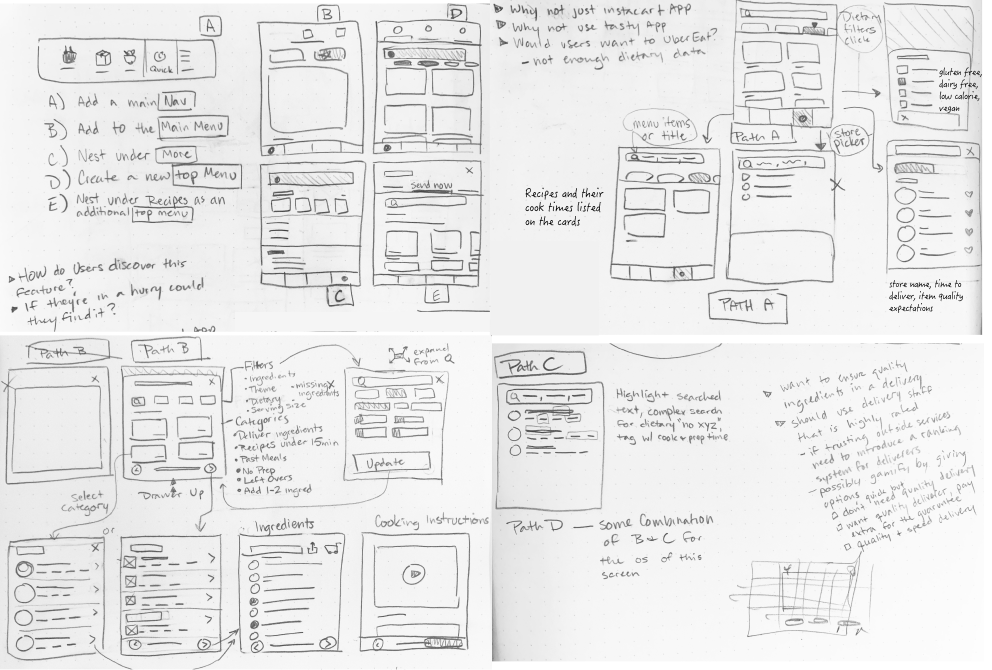 A
Quick
A) Add a main Nav
B) Add to the Main Menu
C) Nest under More
D) Create a new top Menu
E) Nest under Recipes as an
additional top menu
How do users discover this
feature?
If they're in a hurry could
they find it?
B
D
send now
C
E
Why not just instacart App
Why not use tasty App
Would users want to UberEat?
- not enough dietary data
Dietary
filters
click
gluten free,
dairy free,
low calorie,
vegan
menu items
or title
Path A
store
picker
Recipes and their
cook times listed
on the cards
PATH A
store name, time to
deliver, item quality
expectations
Path B
Path B
Filters
Ingredients
Theme
Dietary
Serving Size
missing
ingredients
Categories
Deliver ingredients
Recipes under 15min
Past Meals
No Prep
Left Overs
Add 1-2 ingred
expand
from Q
Update
Select
category
Drawer Up
or
Ingredients
Cooking Instructions
Path C
Highlight searched
text, complex search
for dietary "no xyz",
tag w/ cook & prep time
Path D — some combination
of B & C for
the os of this
screen
want to ensure quality
ingredients in a delivery
should use delivery staff
that is highly rated
- if trusting outside services
need to introduce a ranking
system for deliverers
- possibly gamify by giving
options quick but
don't need quality delivery
want quality deliverer, pay
extra for the guarantee
quality + speed delivery